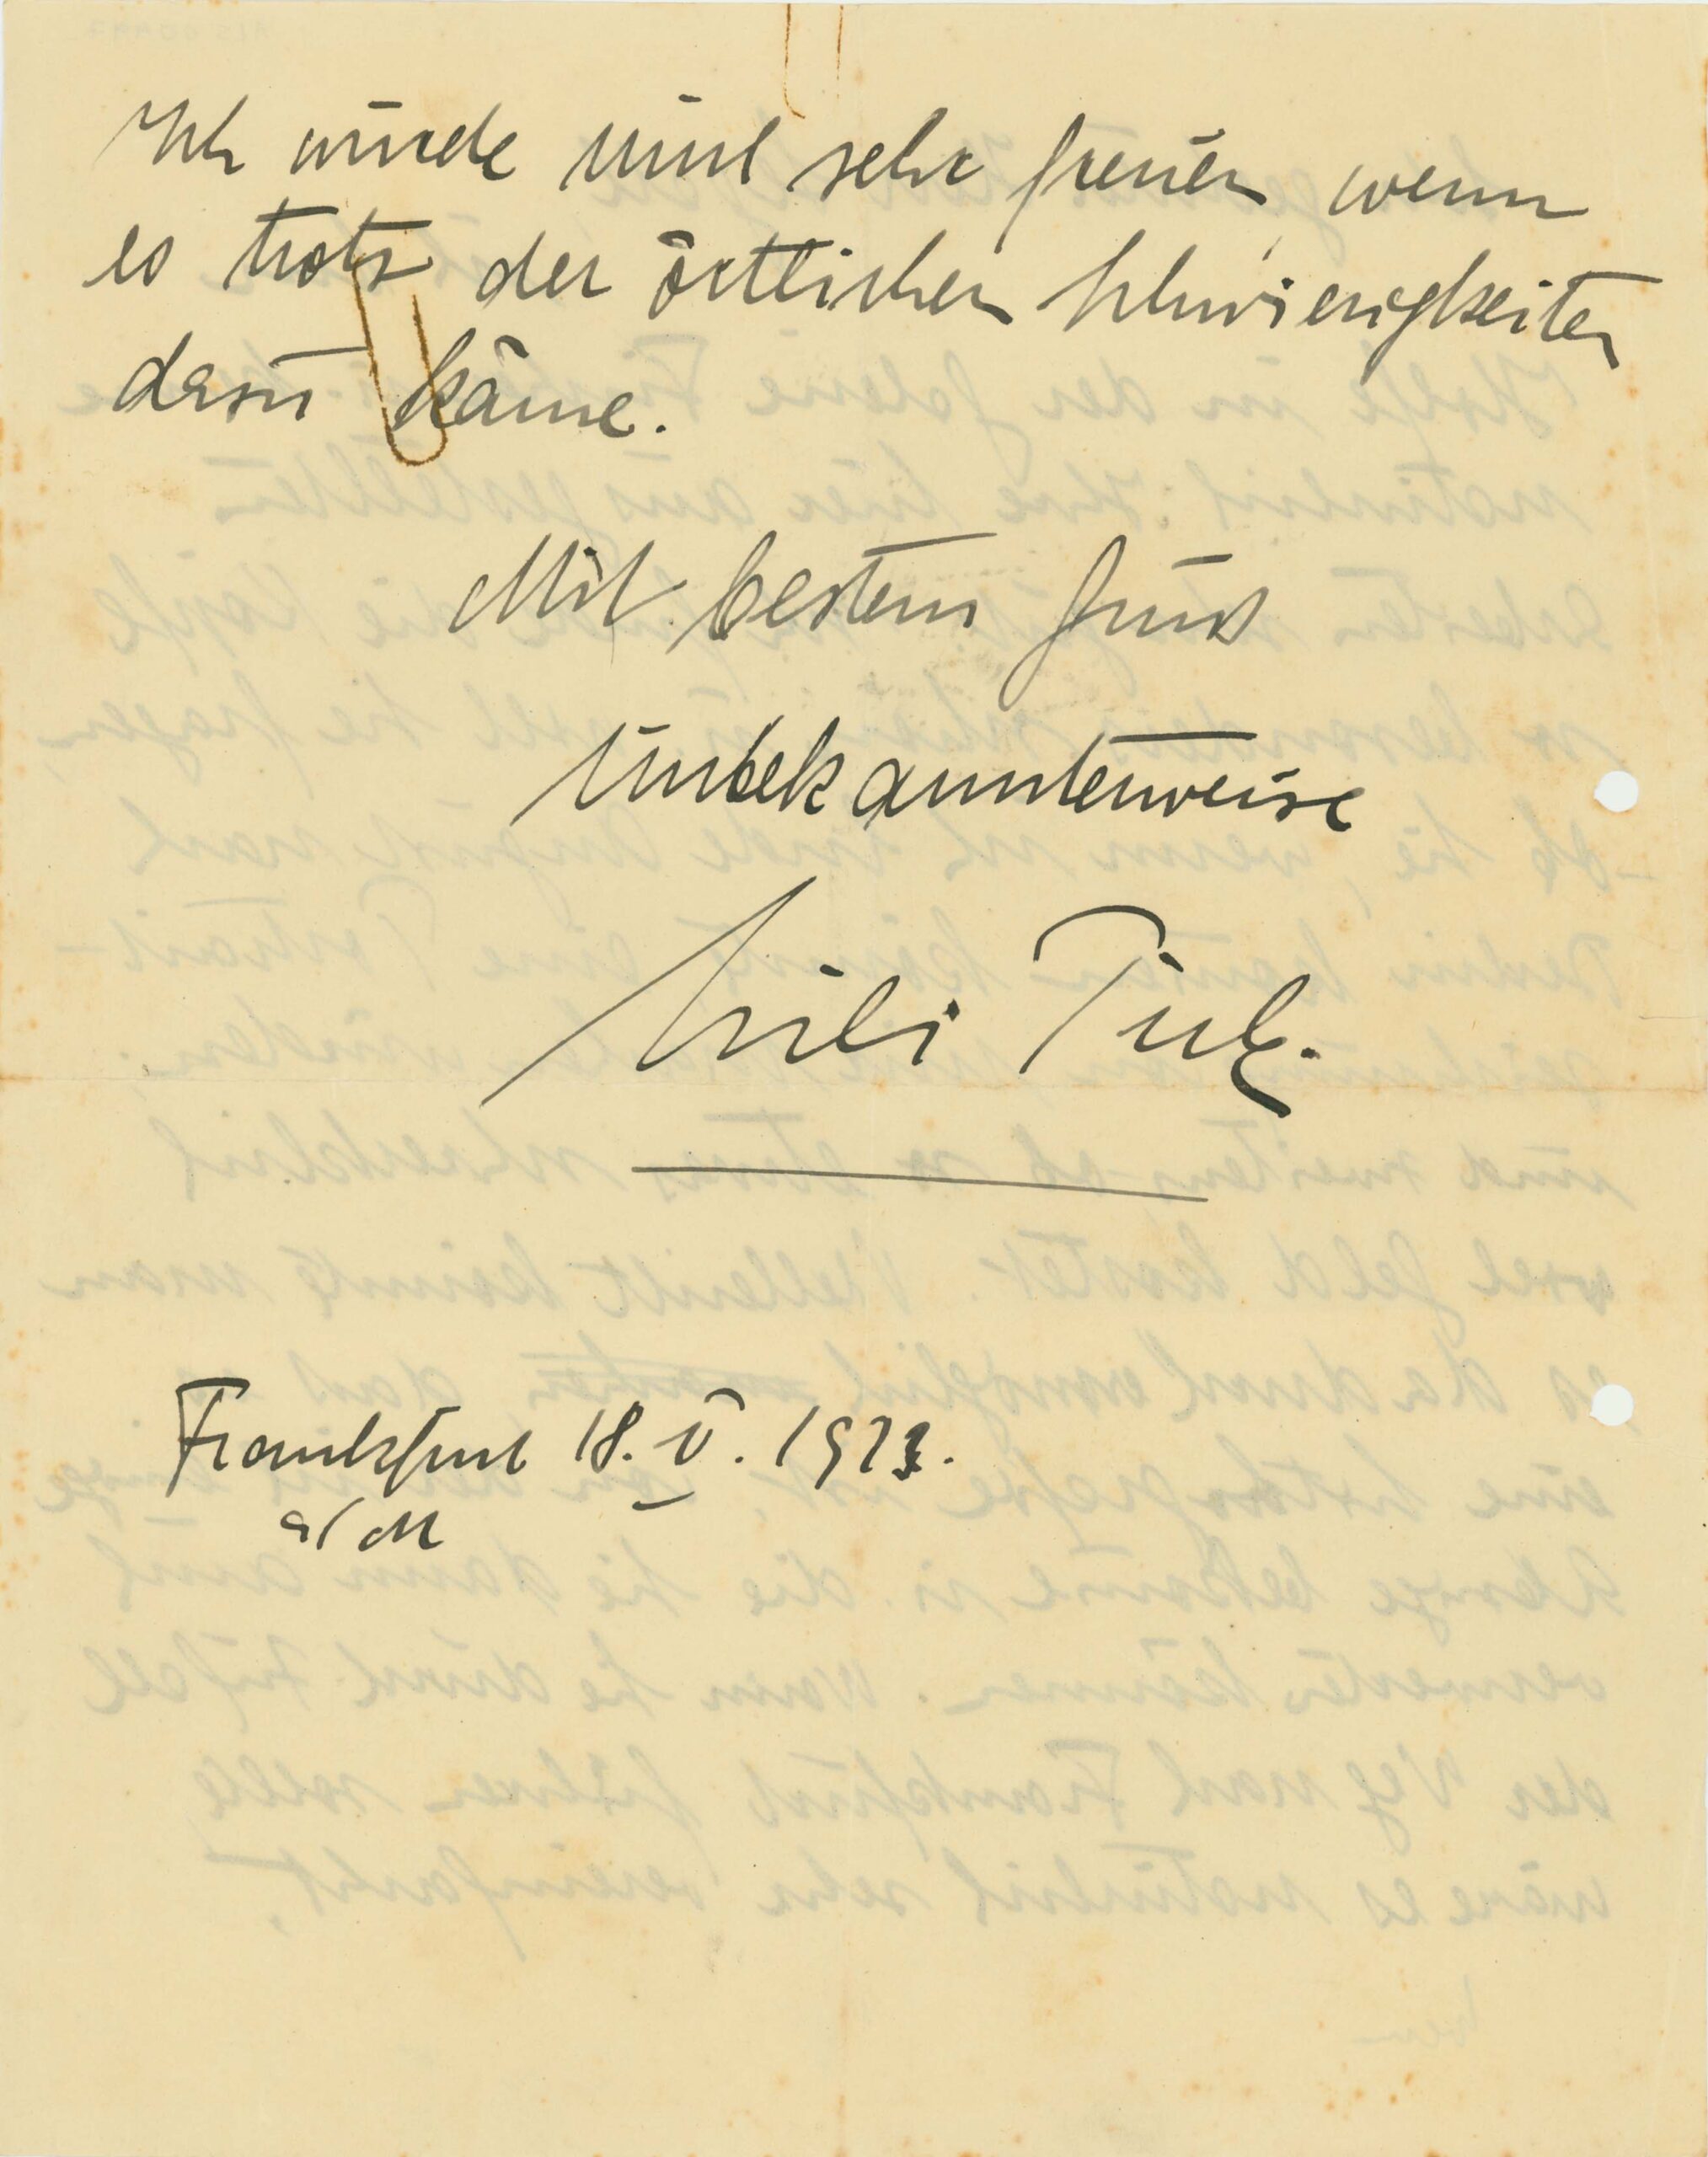 Ich würde mich sehr freuen, wenn
es trotz der örtlichen Schwierigkeiten
dazu käme.
Mit bestem Gruss
Unbekannterweise
Frankfurt 18. V. 192
a/M